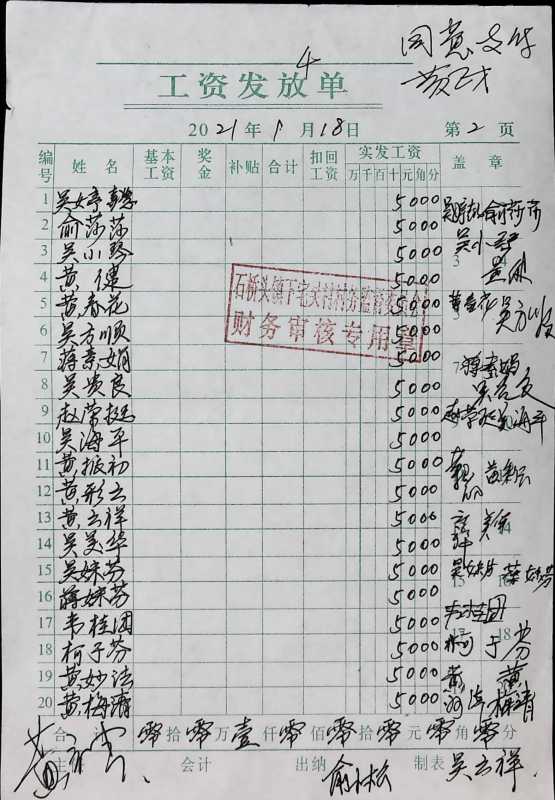 4
同意支付
工资发放单
2021年1月18日 第2页
编号 姓名 基本工资 奖金 补贴 合计 扣回工资 实发工资 盖章
万千百十元角分
1 吴婷 5000
2 俞莎莎 5000 俞莎莎
3 吴小琴 5000 吴小琴
4 黄健 5000 黄健
5 黄春花 5000 黄春花 吴方顺
6 吴方顺 5000
7 蒋素娟 5000 蒋素娟
8 吴贵良 5000 吴贵良
9 赵荣挺 5000 赵荣挺 吴海平
10 吴海平 5000
11 黄振初 5000
12 黄彩云 5000
13 黄云祥 5000
14 吴美华 5000
15 吴妹芬 5000 吴妹芬 蒋妹芬
16 蒋妹芬 5000
17 韦桂团 5000 韦桂团
18 柯于芬 5000 柯于芬
19 黄妙法 5000
20 黄梅清 5000 梅清
石桥头镇下宅村村务监督委员会
财务审核专用章
合计 零拾零万壹仟零佰零拾零元零角零分
主 会计 出纳 俞 制表 吴云祥